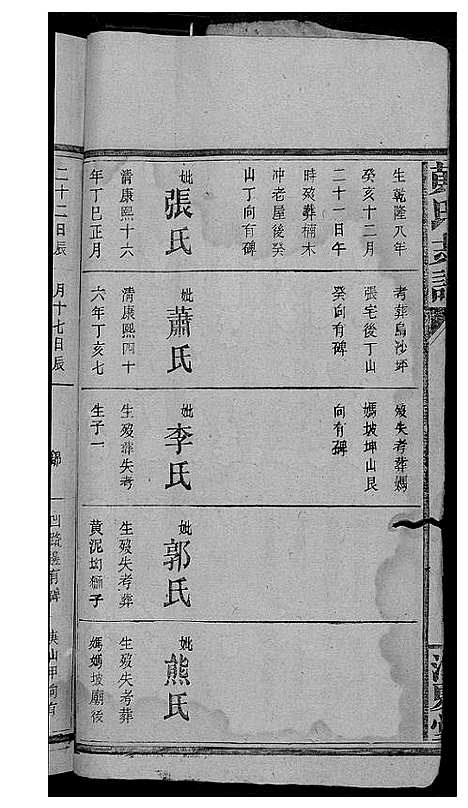 生乾隆八年
癸亥十二月
二十一日午
時歿葬楠木
冲老屋後癸
山丁向有碑
妣張氏
清康熙十六
年丁巳正月
二十二日辰
考葬烏沙坪
張宅後丁山
癸向有碑
妣蕭氏
清康熙四十
六年丁亥七
月十七日辰
歿失考葬媽
媽坡坤山艮
向有碑
妣李氏
生歿葬失考
生子一
妣郭氏
生歿失考葬
黄泥坳獅子
妣熊氏
生歿失考葬
媽媽坡廟後